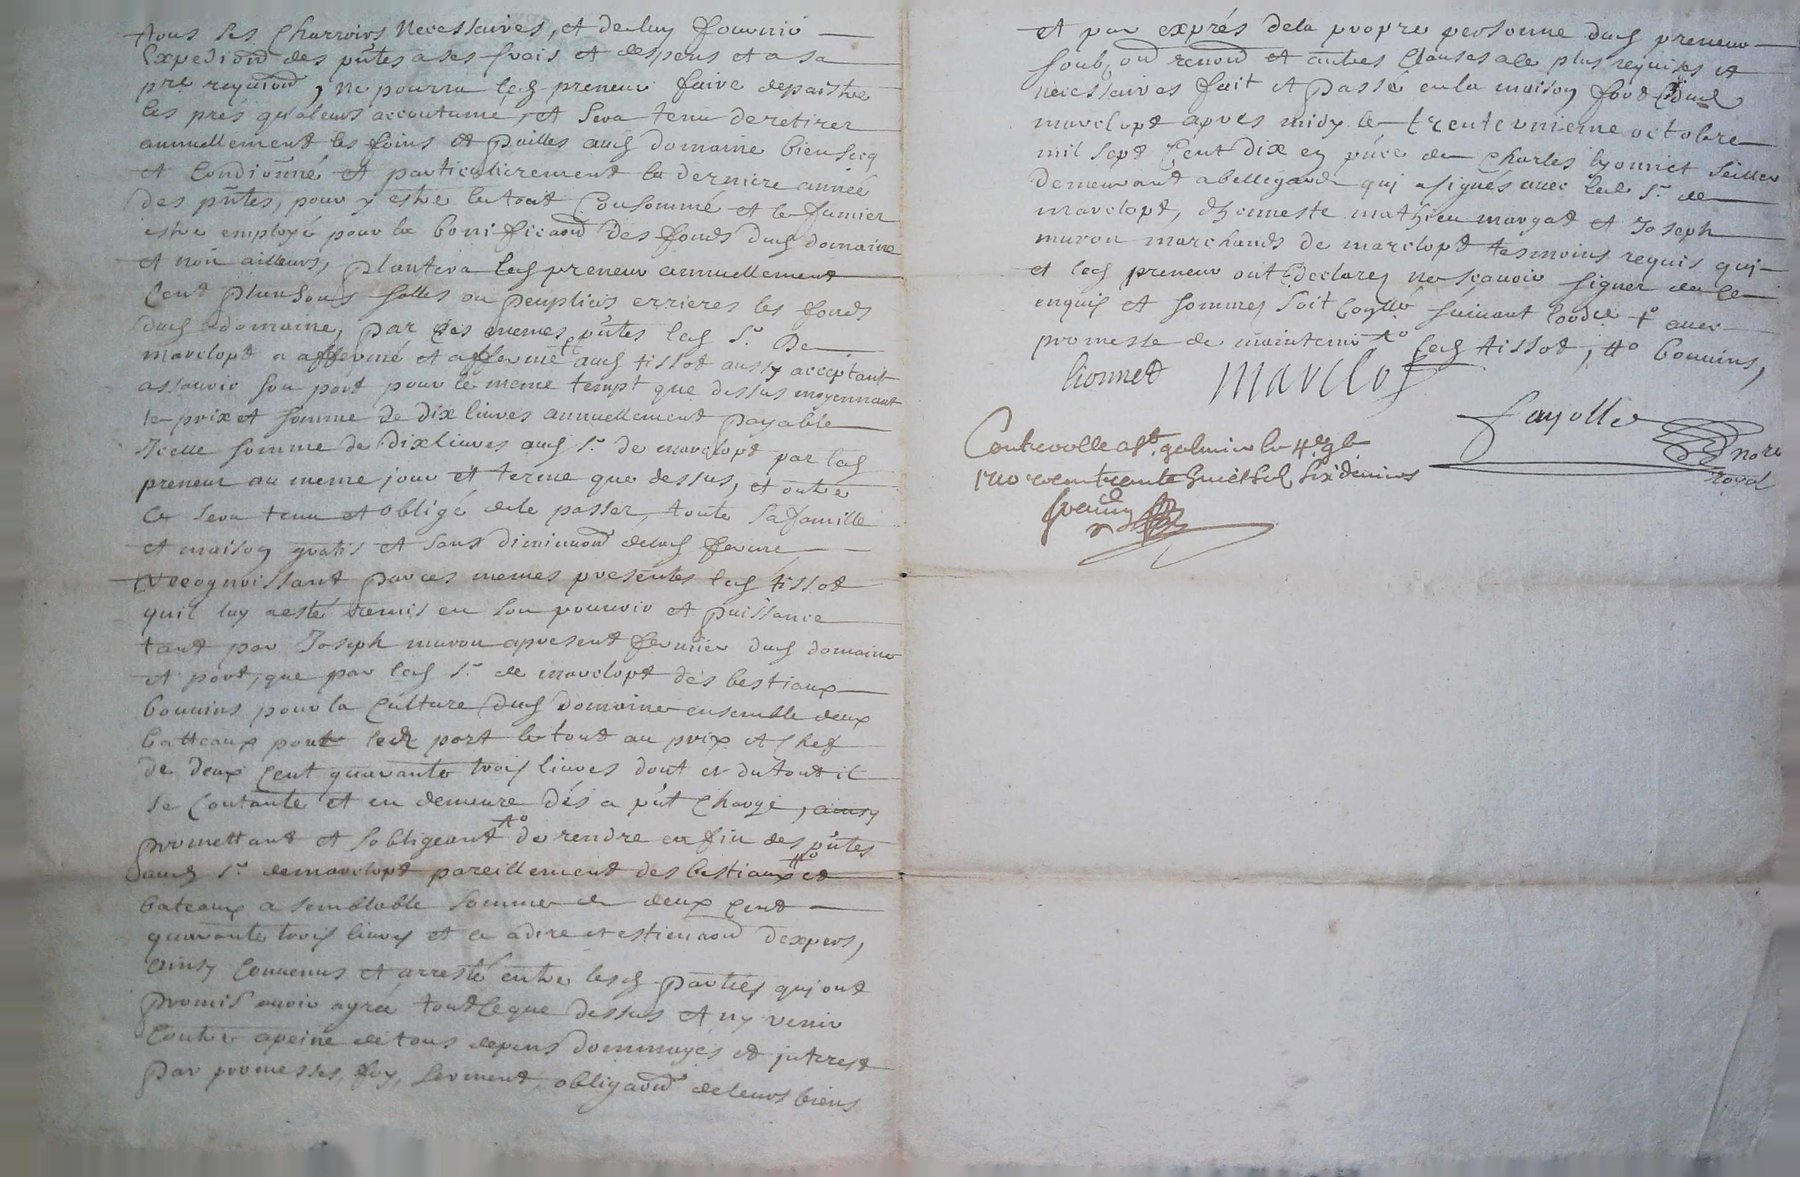 tous les charroirs necessaires, et de luy fournir
expediõn des pñtes a ses frais et despens et a sa
pre reqaiõn, ne pourra led preneur faire depaistre
les prés qu'aleurs accoutumé, et sera tenu de retirer
annuellement les foins et pailles aud domaine bien secq
et condiõnné et particulierement la derniere année
des pñtes, pour y estre le tout consommé et le fumier
estre employé pour la bonificaõn des fonds dud domaine
et non ailleurs, plantera led preneur annuellement
cent planssons solles ou peupliers errieres les fonds
dud domaine, par ces memes pñtes led Sr De
marclopt a affermé et afferme aud tissot aussy acceptant
assavoir son port pour le meme tempt que dessus moyennant
le prix et somme de dix livres annuellement payable
Icelle somme de dix livres aud Sr de marclopt par led
preneur au meme jour et terme que dessus, et outre
ce sera tenu et obligé de le passer, toute sa famille
et maison gratis et sans diminuaõn delad ferme
recognoissant par ces memes presentes led tissot
quil luy a esté remis en son pouvoir et puissance
tant par Joseph muron apresent fermier dud domaine
et port, que par led Sr de marclopt des bestiaux
bouuins pour la culture dud domaine ensemble deux
batteaux pour led port le tout au prix et chef
de deux cent quarante trois liures dont et du tout il
se contante et en demeure dés a pñt chargé, ainsy
promettant et sobligeant +o de rendre en fin des pñtes
aud Sr de marclopt pareillement des bestiaux #o et
bateaux a semblable somme de deux cent
quarante trois liures et ce a dire et estimaõn dexpers,
ainsy conuenus et arresté entre lesd parties qui ont
promis auoir agreé tout ce que dessus et ny venir
contre apeine de tous depens dommages et interest
par promesses, foy, serment, obligaõn de leurs biens
et par exprés dela propre personne dud preneur
soub, on renonõn et autres clauses a ce plus requises et
necessaires fait et passé en la maison fort dud
marclopt apres midy le trente unieme octobre
mil sept cent dix en pñce de Charles lyonnet seiller
demeurant a bellegarde qui a signés auec led Sr de
marclopt, d'honneste mathieu margat et Joseph
muron marchands de marclopt tesmoins requis qui
et led preneur ont declarez ne scavoir signer de ce
enquis et sommez soit suivant lordce +o auec
promesse de maintenir +o led tissot, #o bouuins,
lionnet marclop
fayolle
nore
royal
Controolle a St galmier le 4e 9b
1710 trente huict sol six deniers